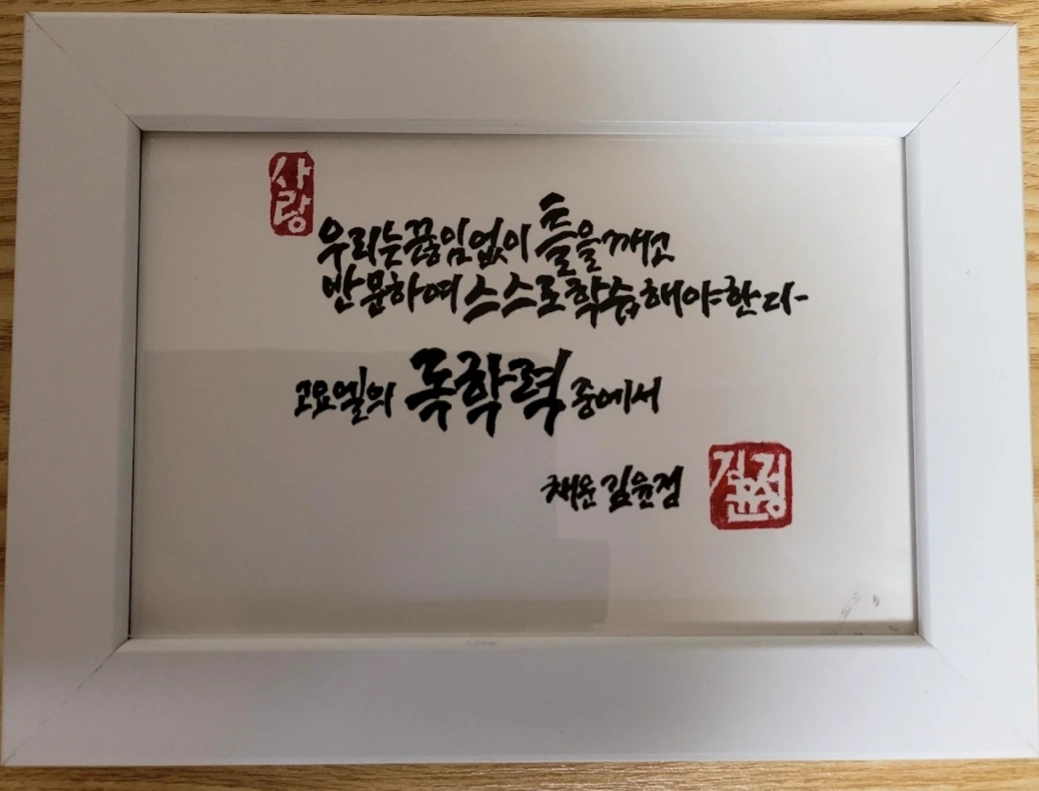 사랑
우리는 끊임없이 틀을 깨고
반문하여 스스로 학습해야한다-
고요엘의 독학력 중에서
채운 김윤정
김윤정